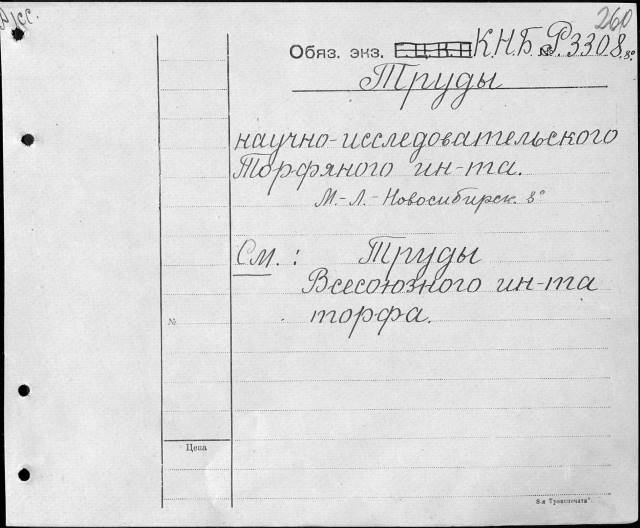 Русс. 260
Обяз. экз. Г.Ц.К.П К.Н.Б. № Р3308.8°
Труды
научно-исследовательского
Торфяного ин-та.
М.-Л.-Новосибирск. 8°
См.: Труды
Всесоюзного ин-та
торфа.
№
Цена
8-я Транспечати".